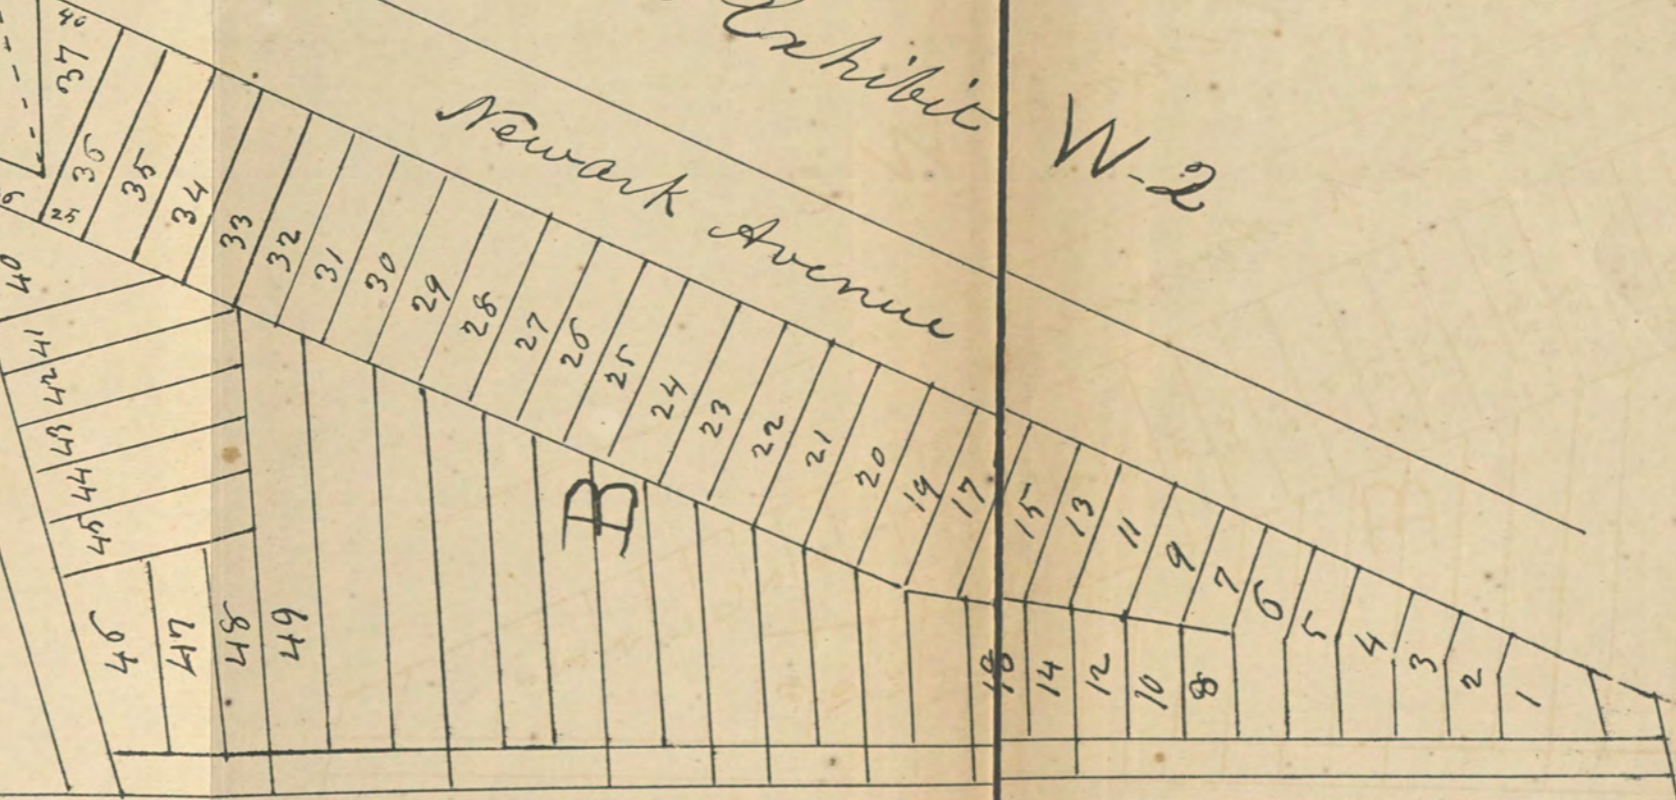 Exhibit W-2
Newark Avenue
B
40
37
36
25
35
34
33
32
31
30
29
28
27
26
25
24
23
22
21
20
19
17
15
13
11
9
7
6
5
4
3
2
1
9
40
41
42
43
44
45
46
47
48
49
14
12
10
8